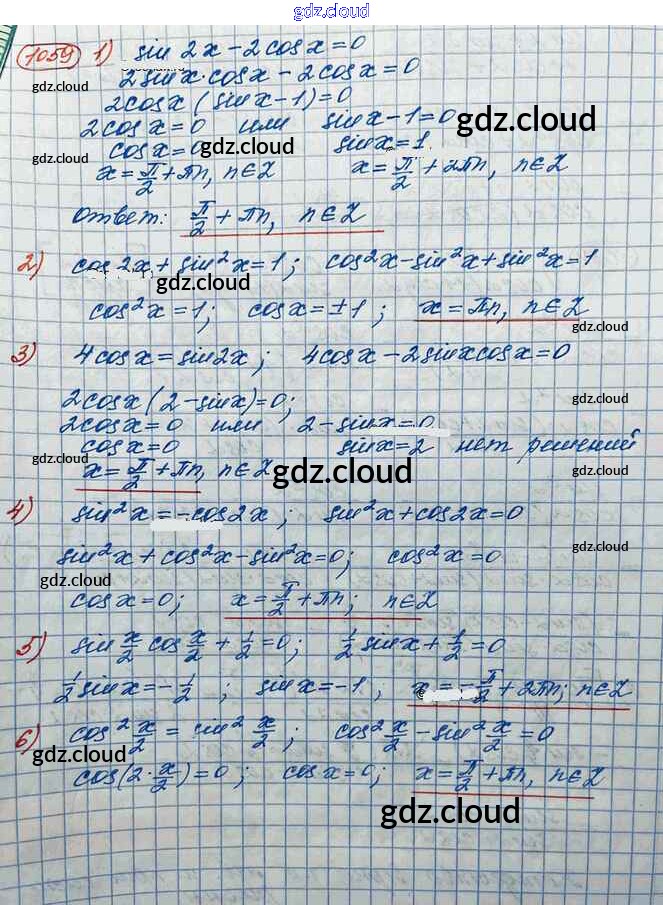 gdz.cloud
1059 1) sin 2x - 2cos x = 0
2sin x·cos x - 2cos x = 0
gdz.cloud
2cos x (sin x - 1) = 0
2cos x = 0 или sin x - 1 = 0 gdz.cloud
cos x = 0 gdz.cloud sin x = 1
gdz.cloud
x = π/2 + πn, n∈Z x = π/2 + 2πn, n∈Z gdz.cloud
Ответ: π/2 + πn, n∈Z
2) cos 2x + sin²x = 1; cos²x - sin²x + sin²x = 1
gdz.cloud
cos²x = 1; cos x = ±1; x = πn, n∈Z
gdz.cloud
3) 4cos x = sin 2x; 4cos x - 2sin x cos x = 0
2cos x (2 - sin x) = 0; gdz.cloud
2cos x = 0 или 2 - sin x = 0
cos x = 0 sin x = 2 нет решений
gdz.cloud x = π/2 + πn, n∈Z gdz.cloud
4) sin²x = -cos 2x; sin²x + cos 2x = 0
sin²x + cos²x - sin²x = 0; cos²x = 0 gdz.cloud
gdz.cloud
cos x = 0; x = π/2 + πn; n∈Z
5) sin x/2 cos x/2 + 1/2 = 0; 1/2 sin x + 1/2 = 0
1/2 sin x = -1/2; sin x = -1, x = -π/2 + 2πn; n∈Z
6) cos² x/2 = sin² x/2; cos² x/2 - sin² x/2 = 0
gdz.cloud
cos(2·x/2) = 0; cos x = 0; x = π/2 + πn, n∈Z
gdz.cloud
gdz.cloud